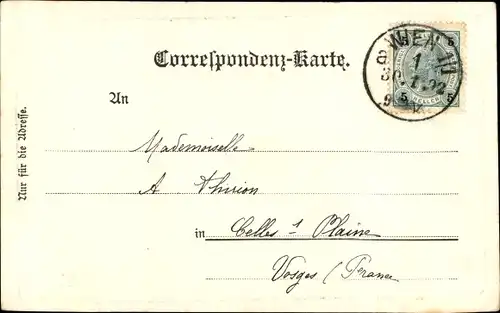 Correspondenz-Karte.
WIEN
1
5
5
HELLER
An
Mademoiselle
A Thirion
in Celles s Plaine
Vosges (France
Nur für die Adresse.